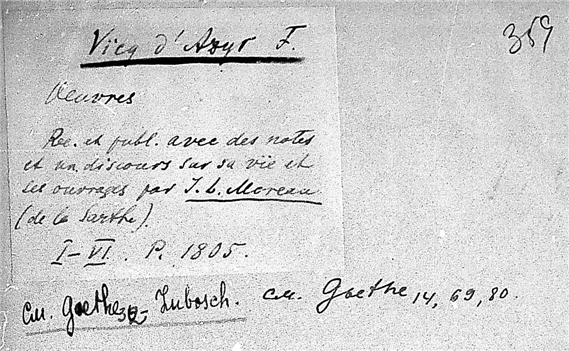 359
Vicq d'Azyr F.
Oeuvres
Rec. et publ. avec des notes
et un discours sur sa vie et
ses ouvrages par J. L. Moreau
(de la Sarthe).
I–VI. P. 1805.
см. Goethe - Lubosch. см. Goethe 14, 69, 80.